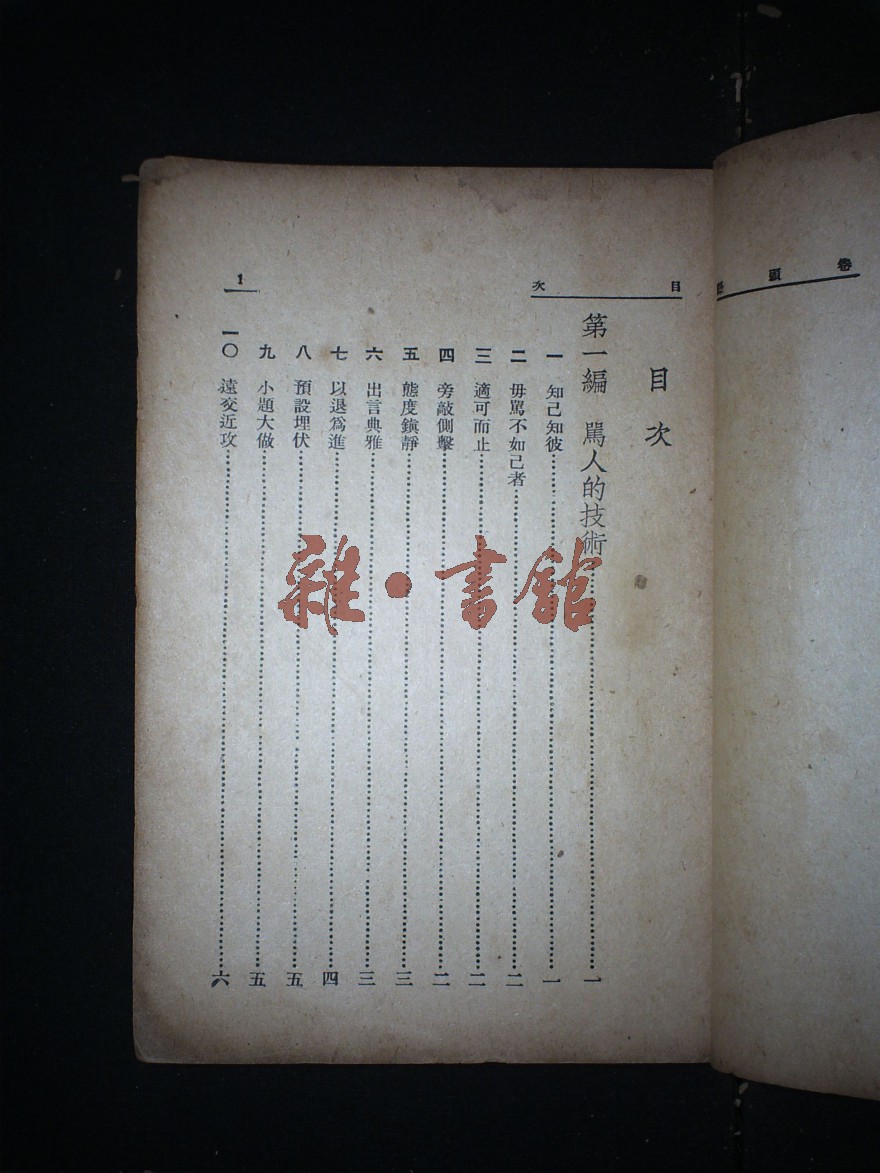 卷頭
目次
目次
第一編 罵人的技術 一
一 知己知彼 一
二 毋罵不如己者 二
三 適可而止 二
四 旁敲側擊 二
五 態度鎮靜 三
六 出言典雅 三
七 以退爲進 四
八 預設埋伏 五
九 小題大做 五
一〇 遠交近攻 六
1
雜·書館